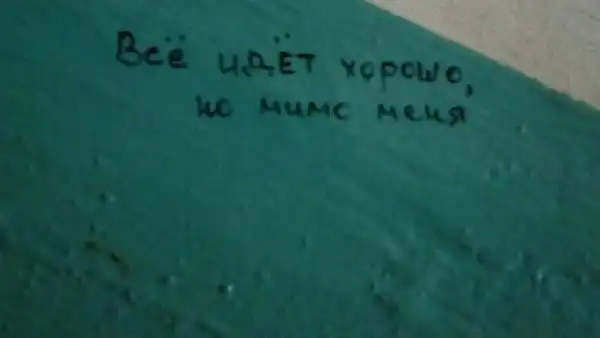 Всё идёт хорошо,
но мимо меня